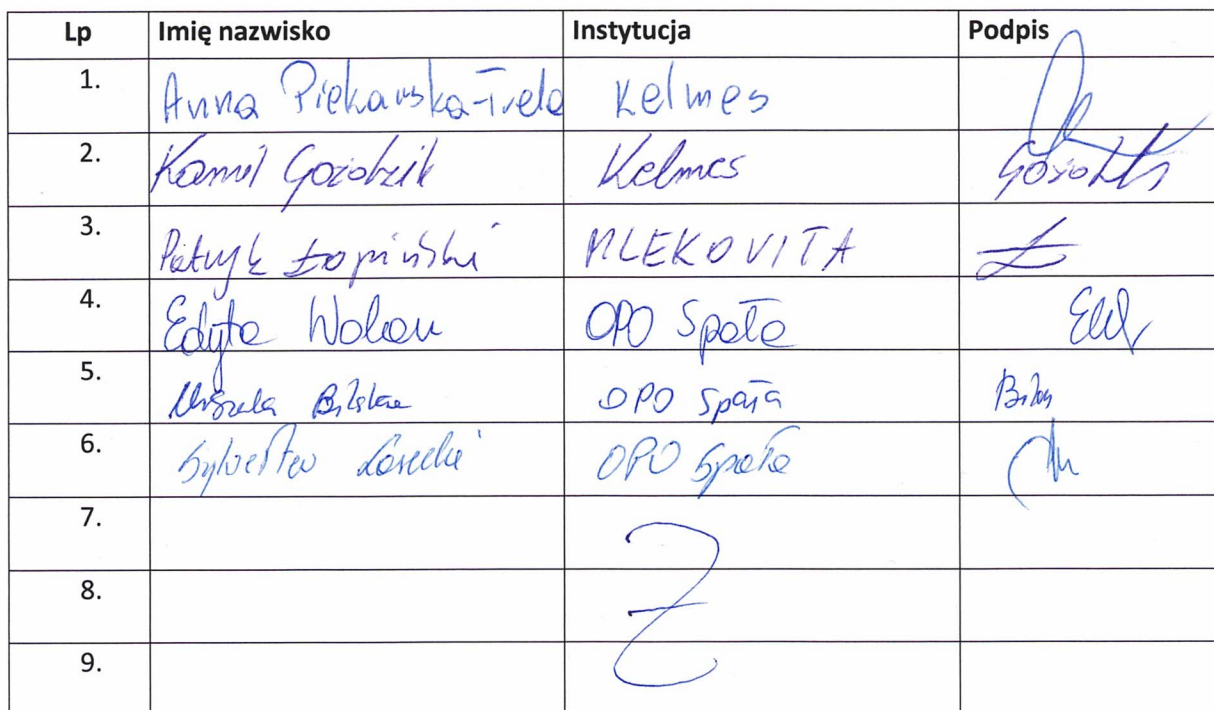 Lp Imię nazwisko Instytucja Podpis
1. Anna Piekarska-Trela Kelmes
2. Kamil Goździk Kelmes
3. Patryk Łopiński MLEKOVITA
4. Edyta OPO Spała
5. Urszula Bilska OPO Spała
6. Sylwester Łosecki OPO Spała
7.
8.
9.